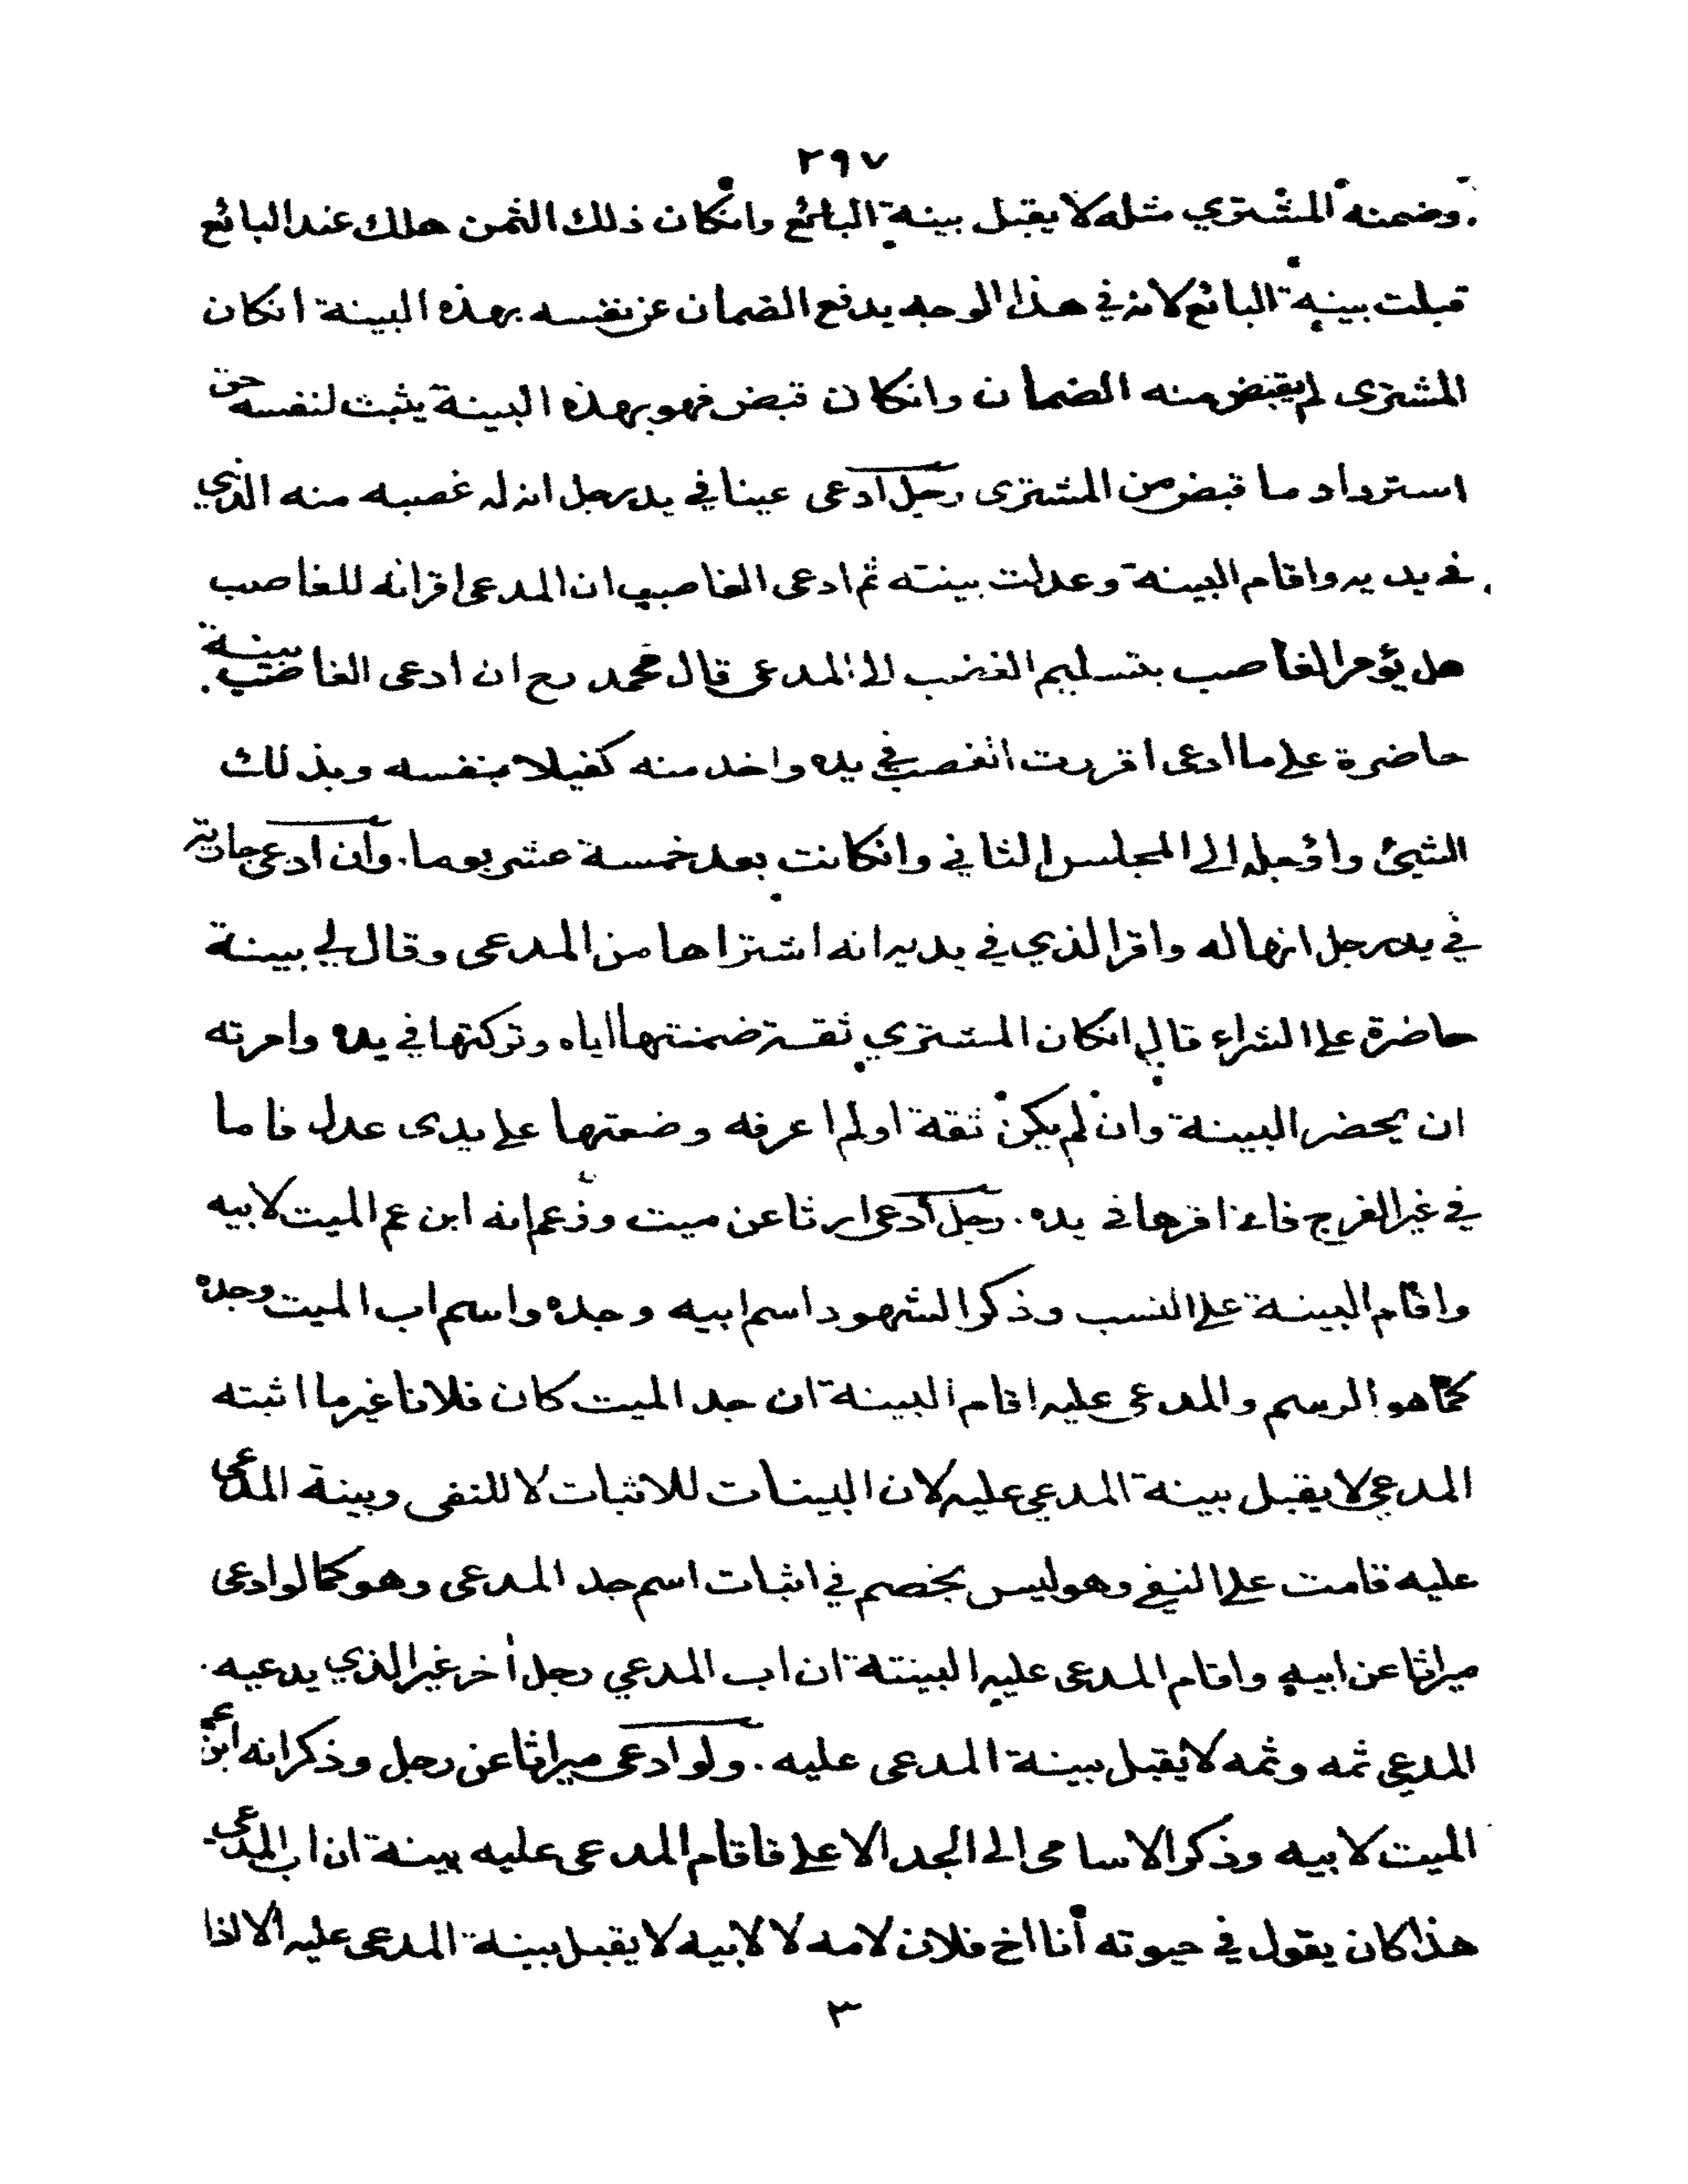 ٢٩٧
وضمنه المشتري مثله لا يقبل بينة البائع وانكان ذلك الثمن هلك عند البائع
قبلت بينة البائع لانه في هذا الوجه يدفع الضمان عن نفسه بهذه البينة انكان
المشترى لم يقبض منه الضمان وانكان قبض فهو بهذه البينة يثبت لنفسه حق
استرداد ما قبض من المشترى رجل ادعى عينا في يد رجل انه له غصبه منه الذي
في يديه واقام البينة وعدلت بينته ثم ادعى الغاصب ان المدعى اقر انه للغاصب
هل يؤمر الغاصب بتسليم الغصب الى المدعى قال محمد رح ان ادعى الغاصب بينة
حاضرة على ما ادعى اقررت الغصب في يده واخد منه كفيلا بنفسه وبذلك
الشيئ واؤجله الى المجلس الثاني وانكانت بعد خمسة عشر يوما. وان ادعى جارية
في يد رجل انها له واقر الذي في يديه انه اشتراها من المدعى وقال لي بينة
حاضرة على الشراء قال انكان المشتري ثقة ضمنتها اياه وتركتها في يده وامرته
ان يحضر البينة وان لم يكن ثقة اولم اعرفه وضعتها على يدى عدل فاما
في غير الفرج اقرها في يده. رجل ادعى ارثا عن ميت وزعم انه ابن عم الميت لابيه
واقام البينة على النسب وذكر الشهود اسم ابيه وجده واسم اب الميت وجده
كما هو الرسم والمدعى عليه اقام البينة ان جد الميت كان فلانا غير ما اثبته
المدعي لا يقبل بينة المدعي عليه لان البينات للاثبات لا للنفى وبينة المدعى
عليه قامت على النفي وهو ليس بخصم في اثبات اسم جد المدعى وهو كما لو ادعى
ميراثا عن ابيه واقام المدعى عليه البينتة ان اب المدعي رجل أخر غير الذي يدعيه.
المدعي ثمه وثمه لا يقبل بينة المدعى عليه. ولو ادعى ميراثا عن رجل وذكر انه ابن عم
الميت لابيه وذكر الاسامى الى الجد الاعلى فاقام المدعى عليه بينة ان اب المدعى
هذا كان يقول في حيوته أنا اخ فلان لامه لا لابيه لا يقبل بينة المدعى عليه الا اذا
٣